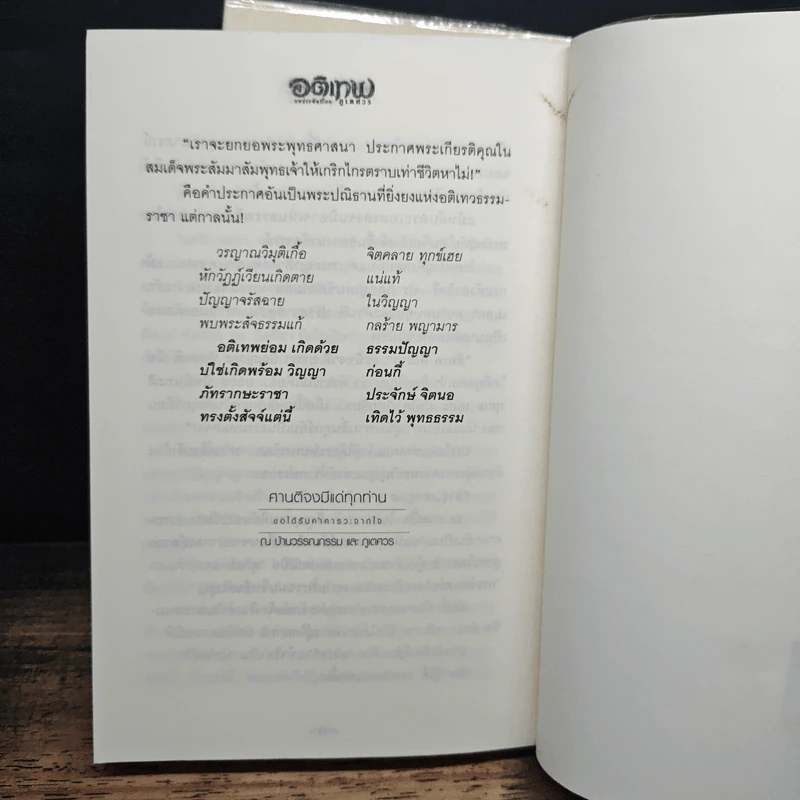 อติเทพ
บทประพันธ์โดย ภูเตศวร
“เราจะยกยอพระพุทธศาสนา ประกาศพระเกียรติคุณใน
สมเด็จพระสัมมาสัมพุทธเจ้าให้เกริกไกรตราบเท่าชีวิตหาไม่!”
คือคำประกาศอันเป็นพระปณิธานที่ยิ่งยงแห่งอติเทวธรรม-
ราชา แต่กาลนั้น!
วรญาณวิมุติเกื้อ จิตคลาย ทุกข์เฮย
หักวัฏฏ์เวียนเกิดตาย แน่แท้
ปัญญาจรัสฉาย ในวิญญา
พบพระสัจธรรมแก้ กลร้าย พญามาร
อติเทพย่อม เกิดด้วย ธรรมปัญญา
บ่ใช่เกิดพร้อม วิญญา ก่อนกี้
ภัทรากษะราชา ประจักษ์ จิตนอ
ทรงตั้งสัจจ์แต่นี้ เทิดไว้ พุทธธรรม
ศานติจงมีแด่ทุกท่าน
ขอได้รับคำคารวะจากใจ
ณ บ้านวรรณกรรม และ ภูเตศวร